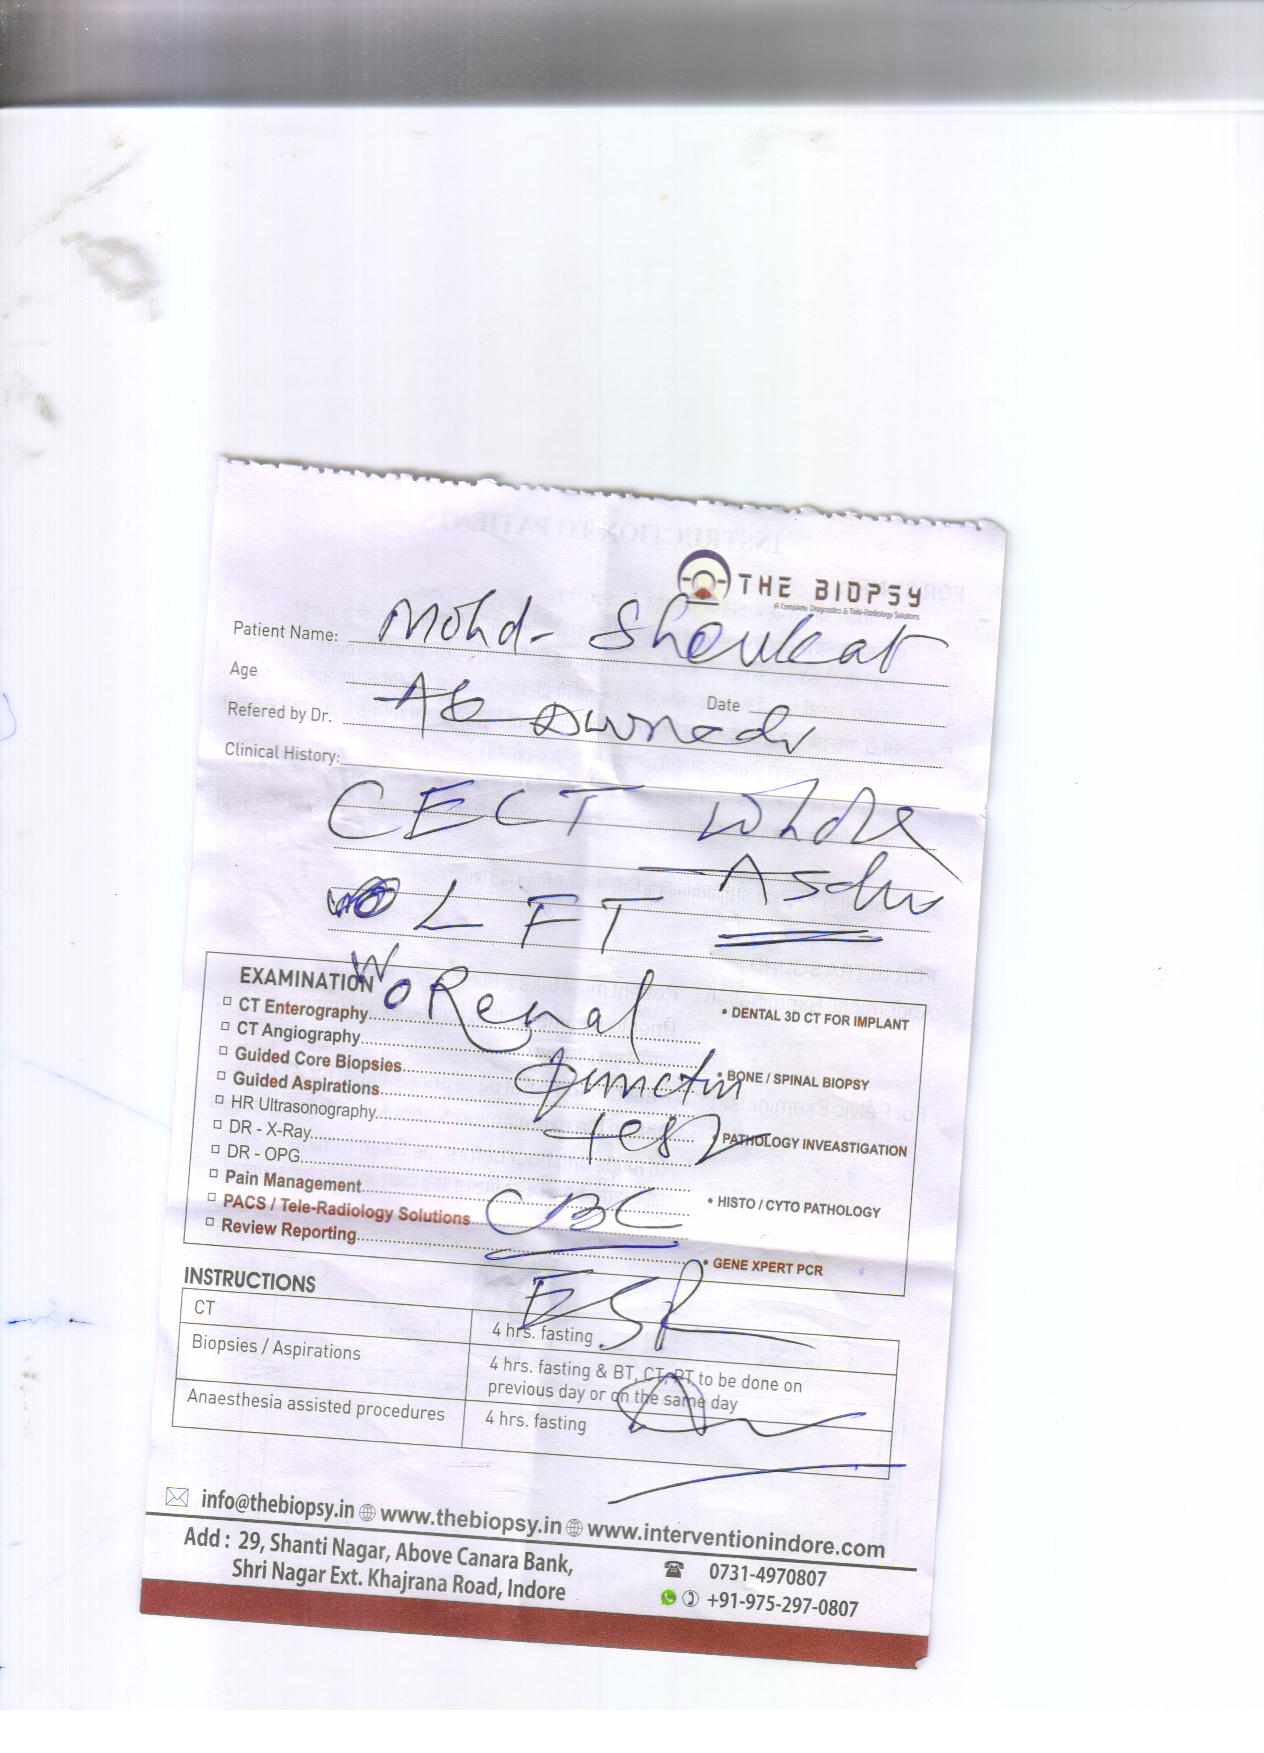 THE BIOPSY
A Complete Diagnostics & Tele-Radiology Solutions
Patient Name: Mohd- Shoukat
Age
Date
Refered by Dr. AK
Clinical History:
CECT Whole
LFT
EXAMINATION
Renal
□ CT Enterography
• DENTAL 3D CT FOR IMPLANT
□ CT Angiography
□ Guided Core Biopsies
function
• BONE / SPINAL BIOPSY
□ Guided Aspirations
□ HR Ultrasonography
test
• PATHOLOGY INVEASTIGATION
□ DR - X-Ray
□ DR - OPG
□ Pain Management
• HISTO / CYTO PATHOLOGY
□ PACS / Tele-Radiology Solutions
CBC
□ Review Reporting
• GENE XPERT PCR
ESR
INSTRUCTIONS
CT 4 hrs. fasting
Biopsies / Aspirations 4 hrs. fasting & BT, CT, PT to be done on
previous day or on the same day
Anaesthesia assisted procedures 4 hrs. fasting
info@thebiopsy.in www.thebiopsy.in www.interventionindore.com
Add : 29, Shanti Nagar, Above Canara Bank,
Shri Nagar Ext. Khajrana Road, Indore
0731-4970807
+91-975-297-0807